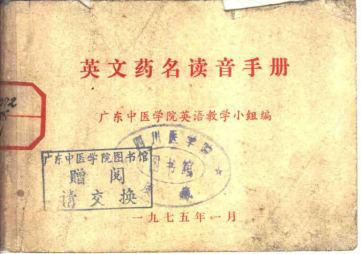 英文药名读音手册
广东中医学院英语教学小组编
广东中医学院图书馆
赠阅
请交换
医学院
图书馆
藏
一九七五年一月